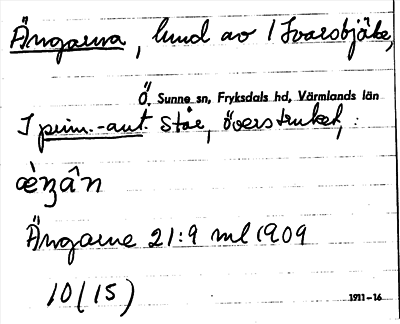 Ängarna, hmd av 1 Svarsbjäke,
Ö. Sunne sn, Fryksdals hd, Värmlands län
I prim.-aut. står, överstruket,:
æ̀ŋân
Ängarne 21:9 ml 1909
10(15)
1911-16